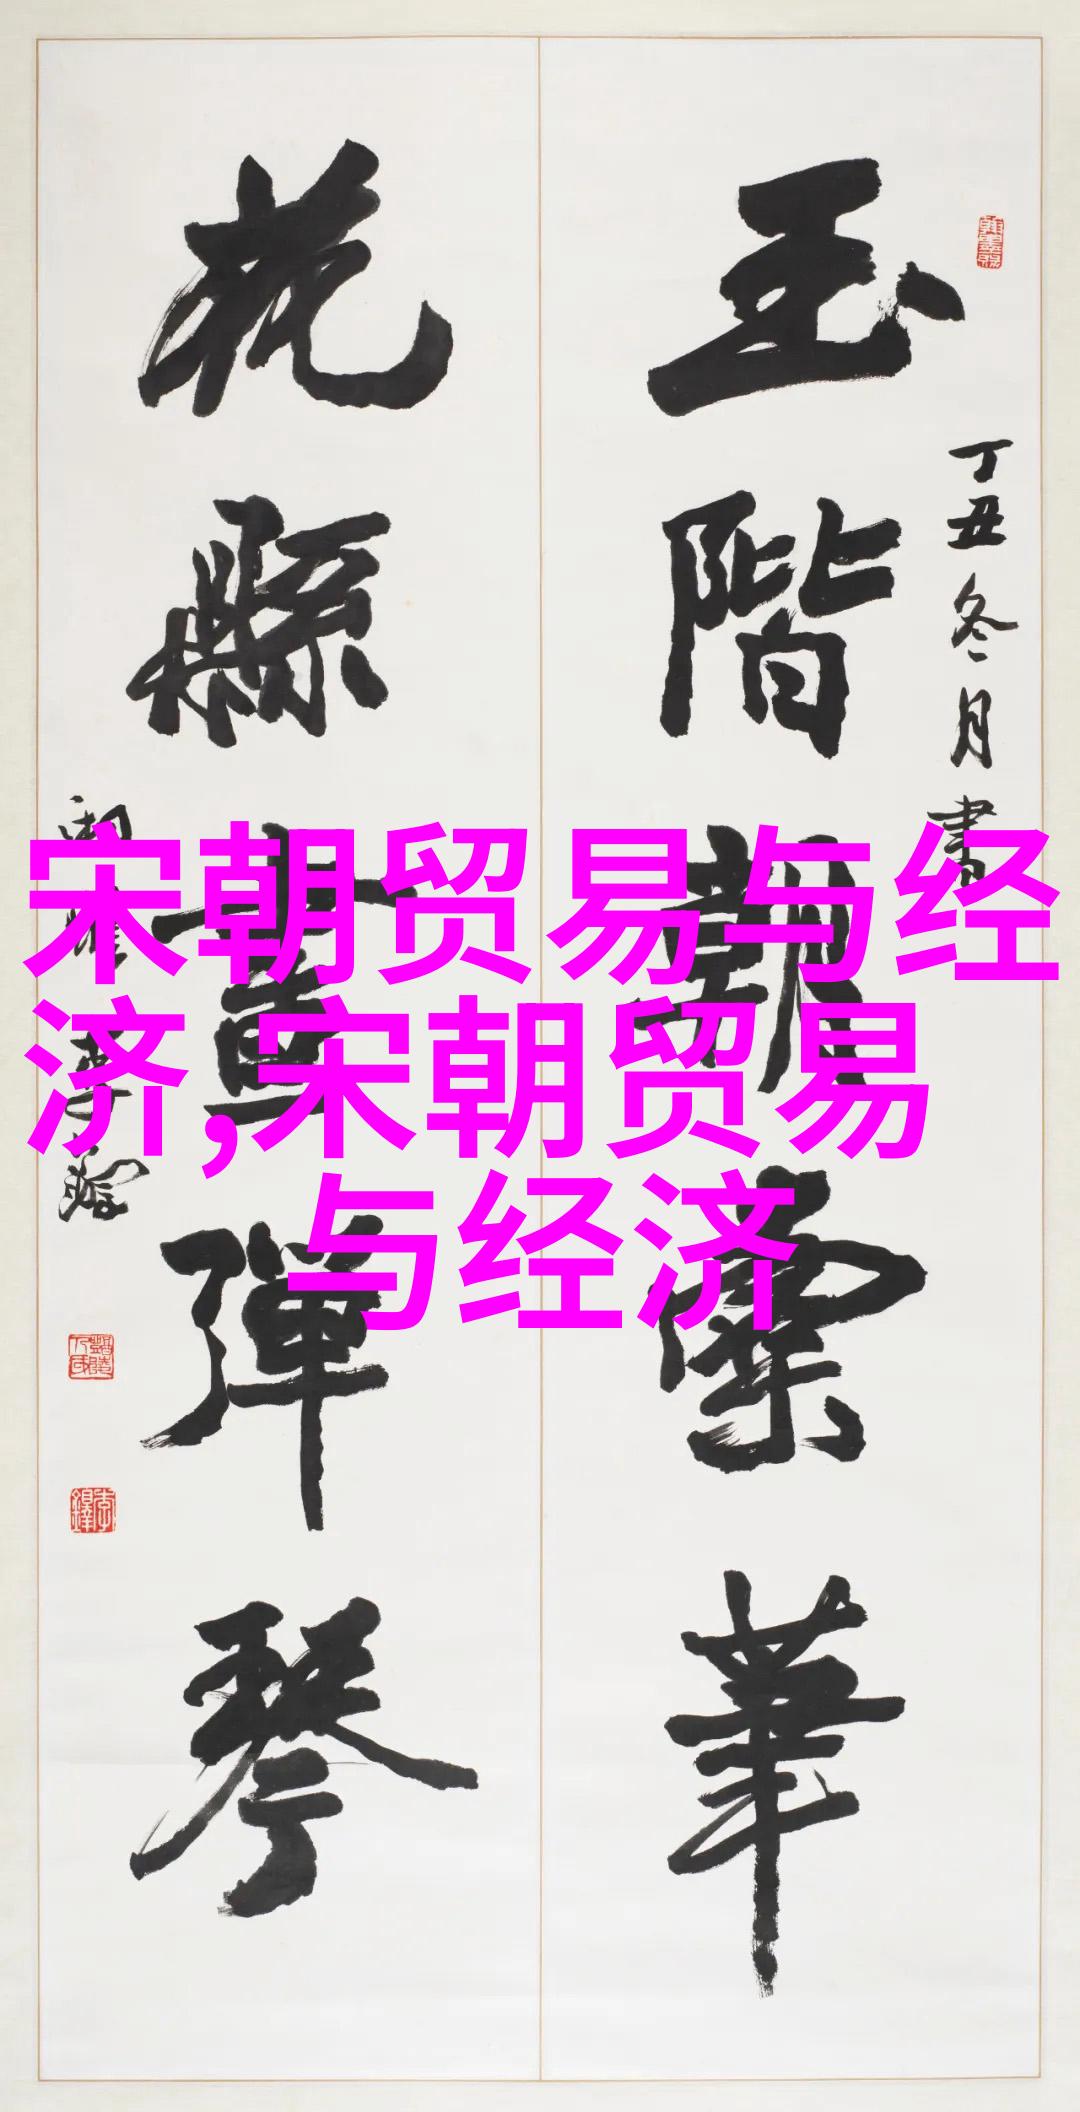 丁丑冬月書
玉階朝華
花縣晝彈琴
李鐸
宋朝贸易与经
济,宋朝贸易
与经济